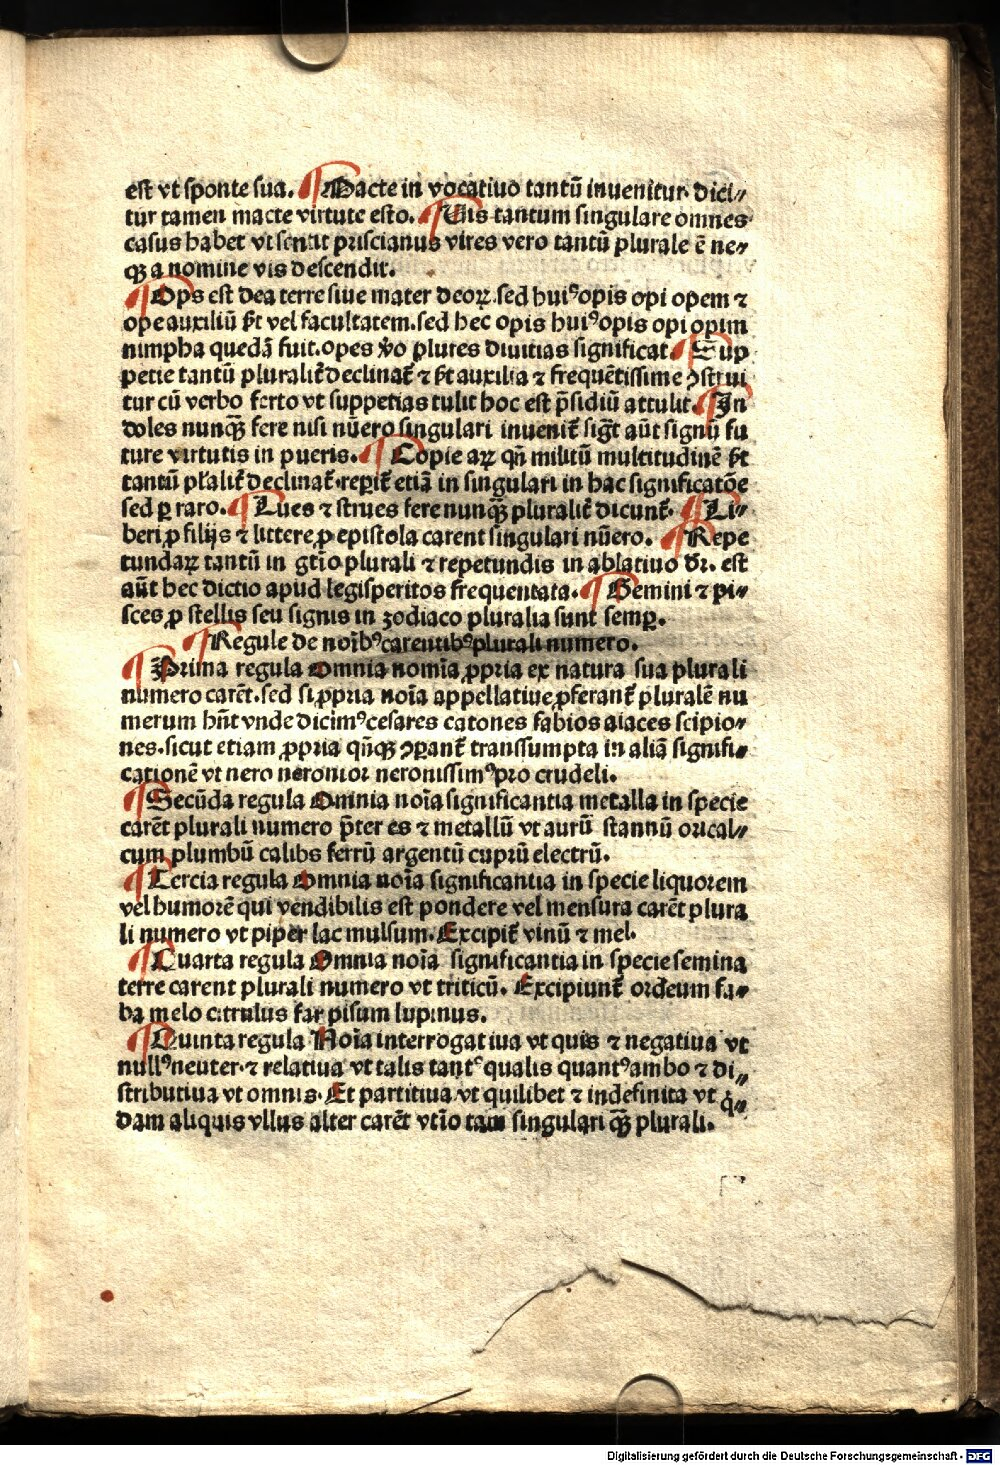 est vt sponte sua. ¶ Macte in vocatiuo tantū inuenitur. dici⸗
tur tamen macte virtute esto. ¶ Uis tantum singulare omnes
casus habet vt sentit priscianus vires vero tantū plurale ē ne⸗
qꝫ a nomine vis descendit.
¶ Ops est dea terre siue mater deoꝝ. sed huiꝰ opis opi opem ⁊
ope auxiliū s̄t vel facultatem. sed hec opis huiꝰ opis opi opim
nimpha quedā fuit. opes v̊o plures diuitias significat. ¶ Sup
petie tantū pluralit̄ declinat̄ ⁊ s̄t auxilia ⁊ frequētissime ꝯstrui
tur cū verbo ferto vt suppetias tulit hoc est p̄sidiū attulit. ¶ In
doles nunqꝫ fere nisi nūero singulari inuenit̄ sigt̄ aūt signū fu
ture virtutis in pueris. ¶ Copie aꝝ qn̄ militū multitudinē s̄t
tantū pl̄alit̄ declinat̄. reꝑit̄ etiā in singulari in hac significatōe
sed ꝑ raro. ¶ Lues ⁊ strues fere nunqꝫ pluralit̄ dicunt̄. ¶ Li⸗
beri ꝓ filijs ⁊ littere ꝓ epistola carent singulari nūero. ¶ Repe
tundaꝝ tantū in gtīo plurali ⁊ repetundis in ablatiuo dr̄. est
aūt hec dictio apud legisperitos frequentata. ¶ Gemini ⁊ pi⸗
sces ꝓ stellis seu signis in zodiaco pluralia sunt semꝑ.
¶ Regule de noībꝰ carentibꝰ plurali numero.
¶ Prima regula Omnia nomīa ꝓpria ex natura sua plurali
numero carēt. sed si ꝓpria noīa appellatiue ꝓferant̄ pluralē nu
merum hn̄t vnde dicimꝰ cesares catones fabios aiaces scipio⸗
nes. sicut etiam ꝓpria qn̄qꝫ ꝯꝑant̄ transsumpta in aliā signifi⸗
cationē vt nero neronior neronissimꝰ pro crudeli.
¶ Secūda regula Omnia noīa significantia metalla in specie
carēt plurali numero p̄ter es ⁊ metallū vt aurū stannū orical⸗
cum plumbū calibs ferrū argentū cuprū electrū.
¶ Tercia regula Omnia noīa significantia in specie liquorem
vel humorē qui vendibilis est pondere vel mensura carēt plura
li numero vt piper lac mulsum. Excipit̄ vinū ⁊ mel.
¶ Quarta regula Omnia noīa significantia in specie semina
terre carent plurali numero vt triticū. Excipiunt̄ ordeum fa⸗
ba melo citrulus far pisum lupinus.
¶ Quinta regula Noīa interrogatiua vt quis ⁊ negatiua vt
nullꝰ neuter. ⁊ relatiua vt talis tantꝰ qualis quantꝰ ambo ⁊ di⸗
stributiua vt omnis. Et partitiua vt quilibet ⁊ indefinita vt q̇⸗
dam aliquis vllus alter carēt vtīo tam singulari qꝫ plurali.
Digitalisierung gefördert durch die Deutsche Forschungsgemeinschaft - DFG